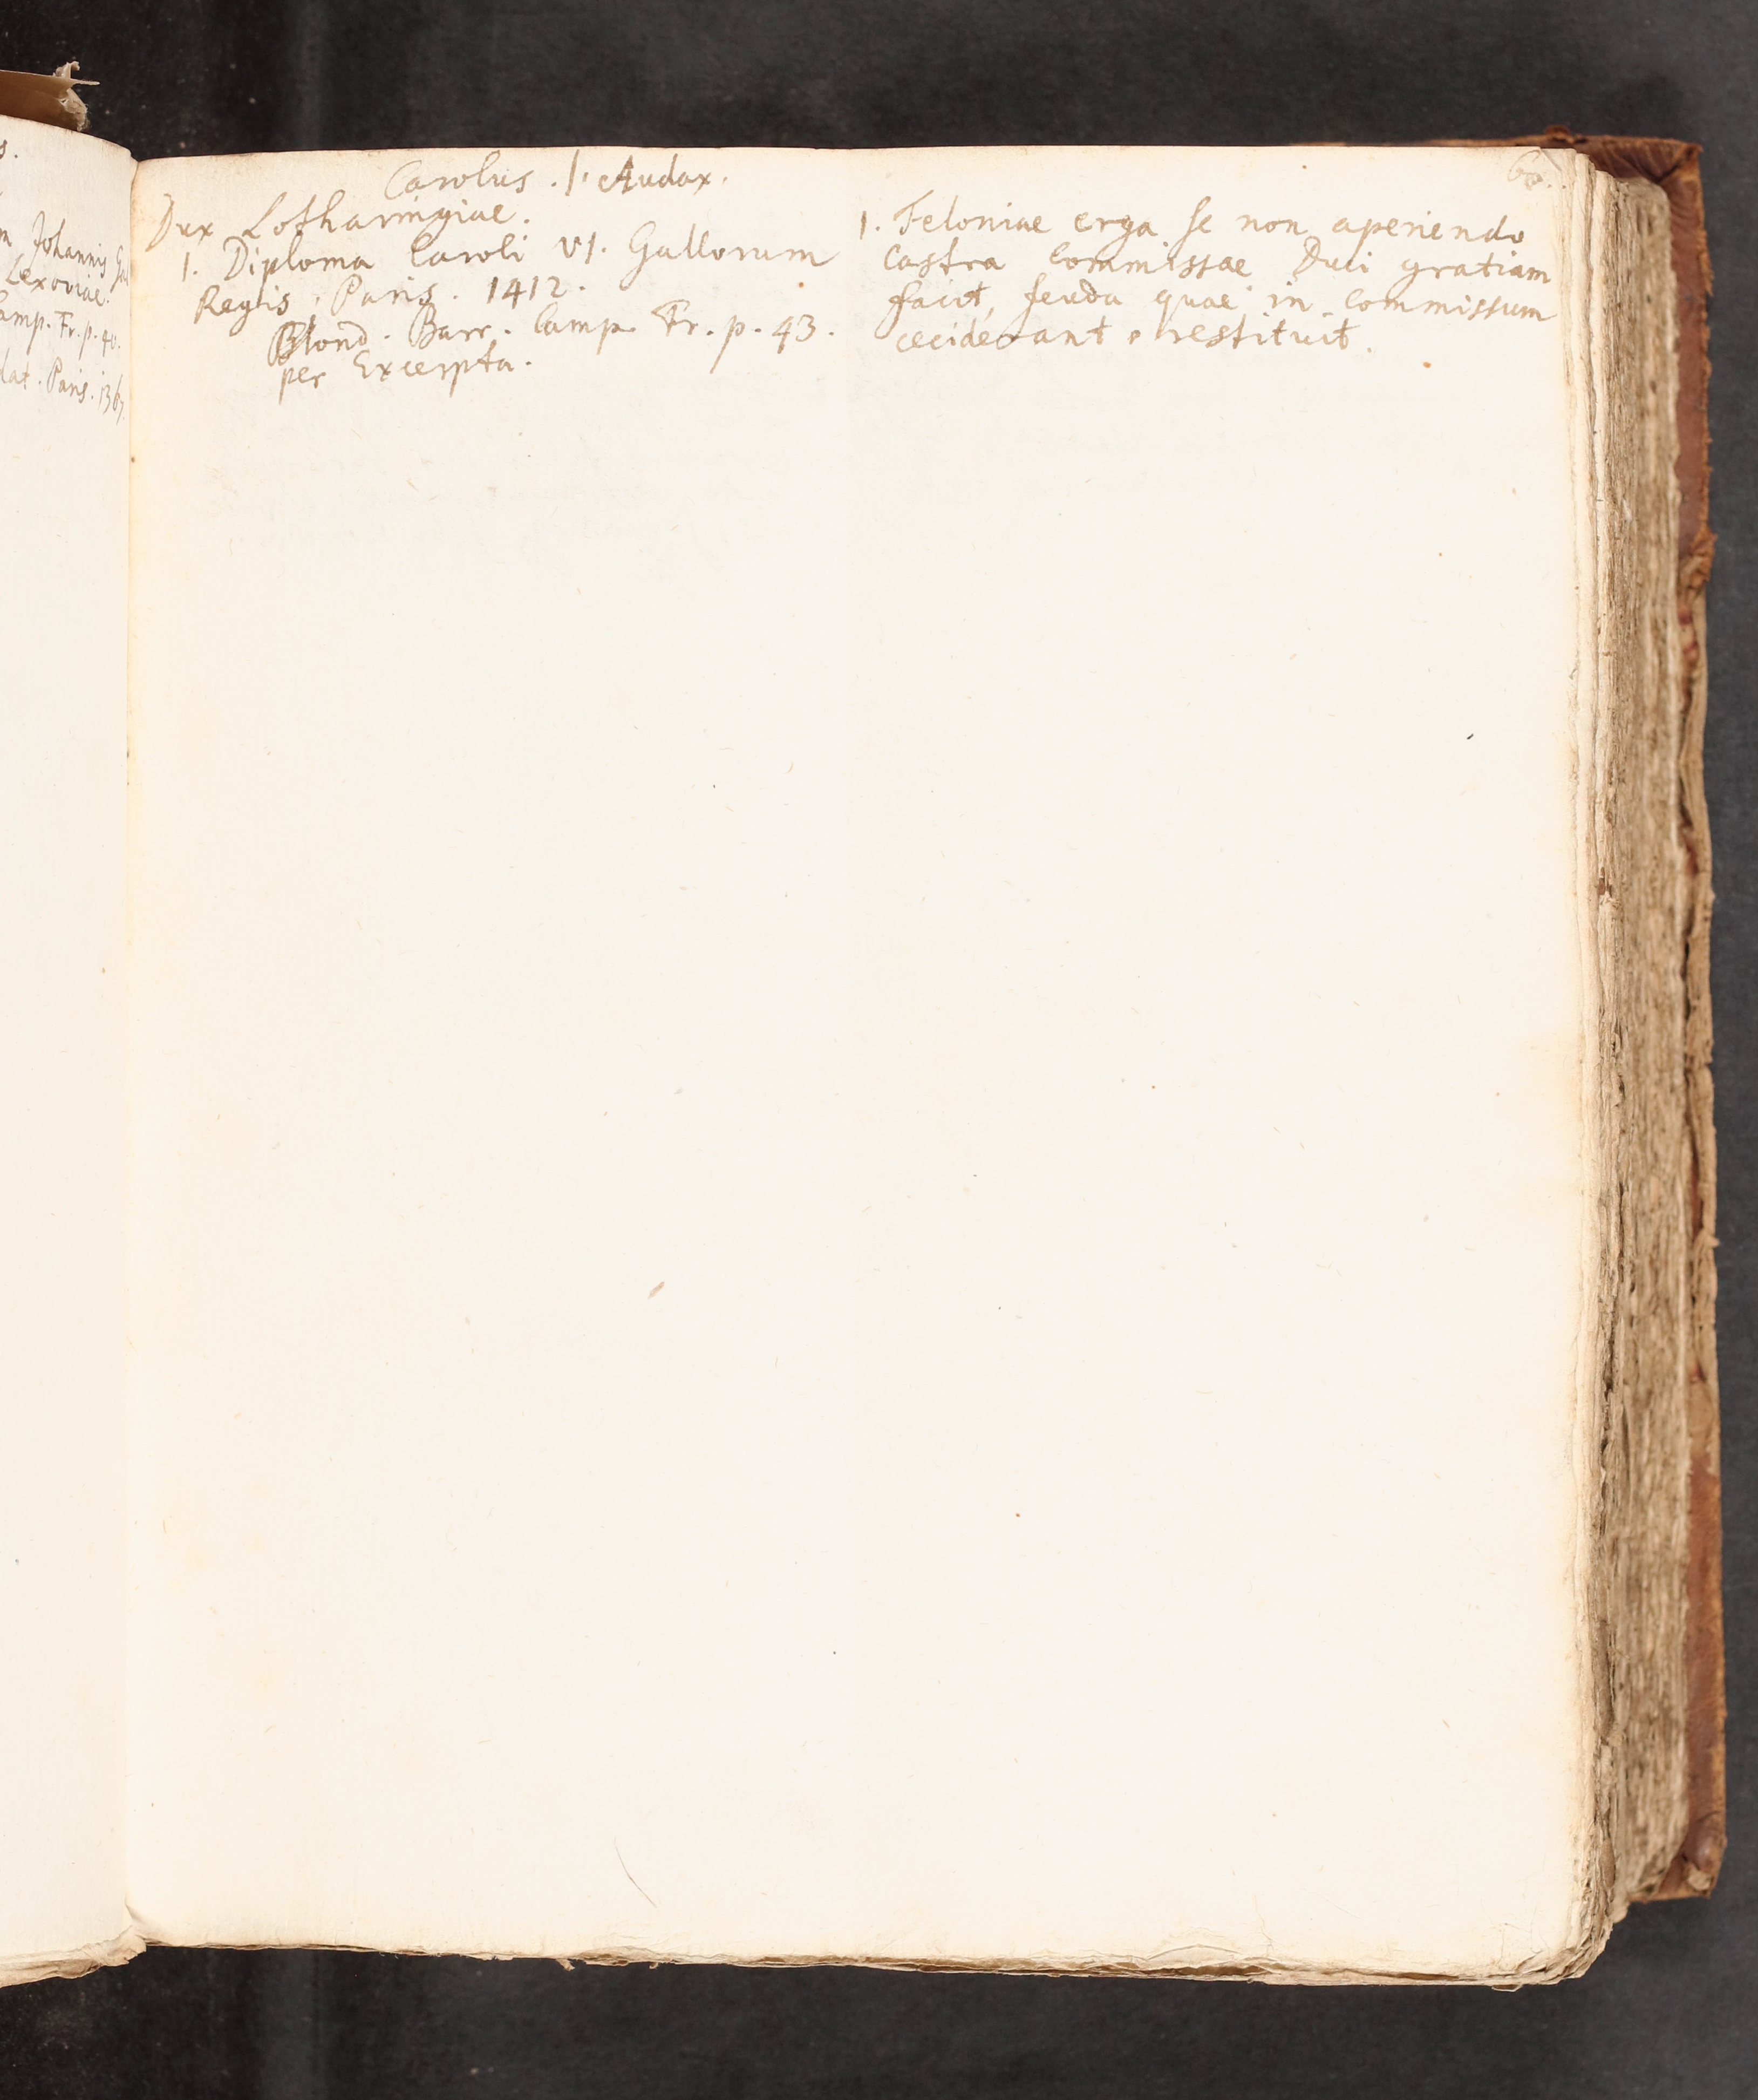 s.
Johannis
Lexoviae.
Camp. Fr. p. 40.
dat. Paris. 1367.
Carolus. I. Audax.
Dux Lotharingiae.
1. Diploma Caroli VI. Gallorum
Regis, Paris. 1412.
Blond. Barr. Camp. Fr. p. 43.
per Excerpta.
1. Feloniae erga se non aperiendo
Castra Commissae Duci gratiam
facit, feuda quae in Commissum
ceciderant restituit.